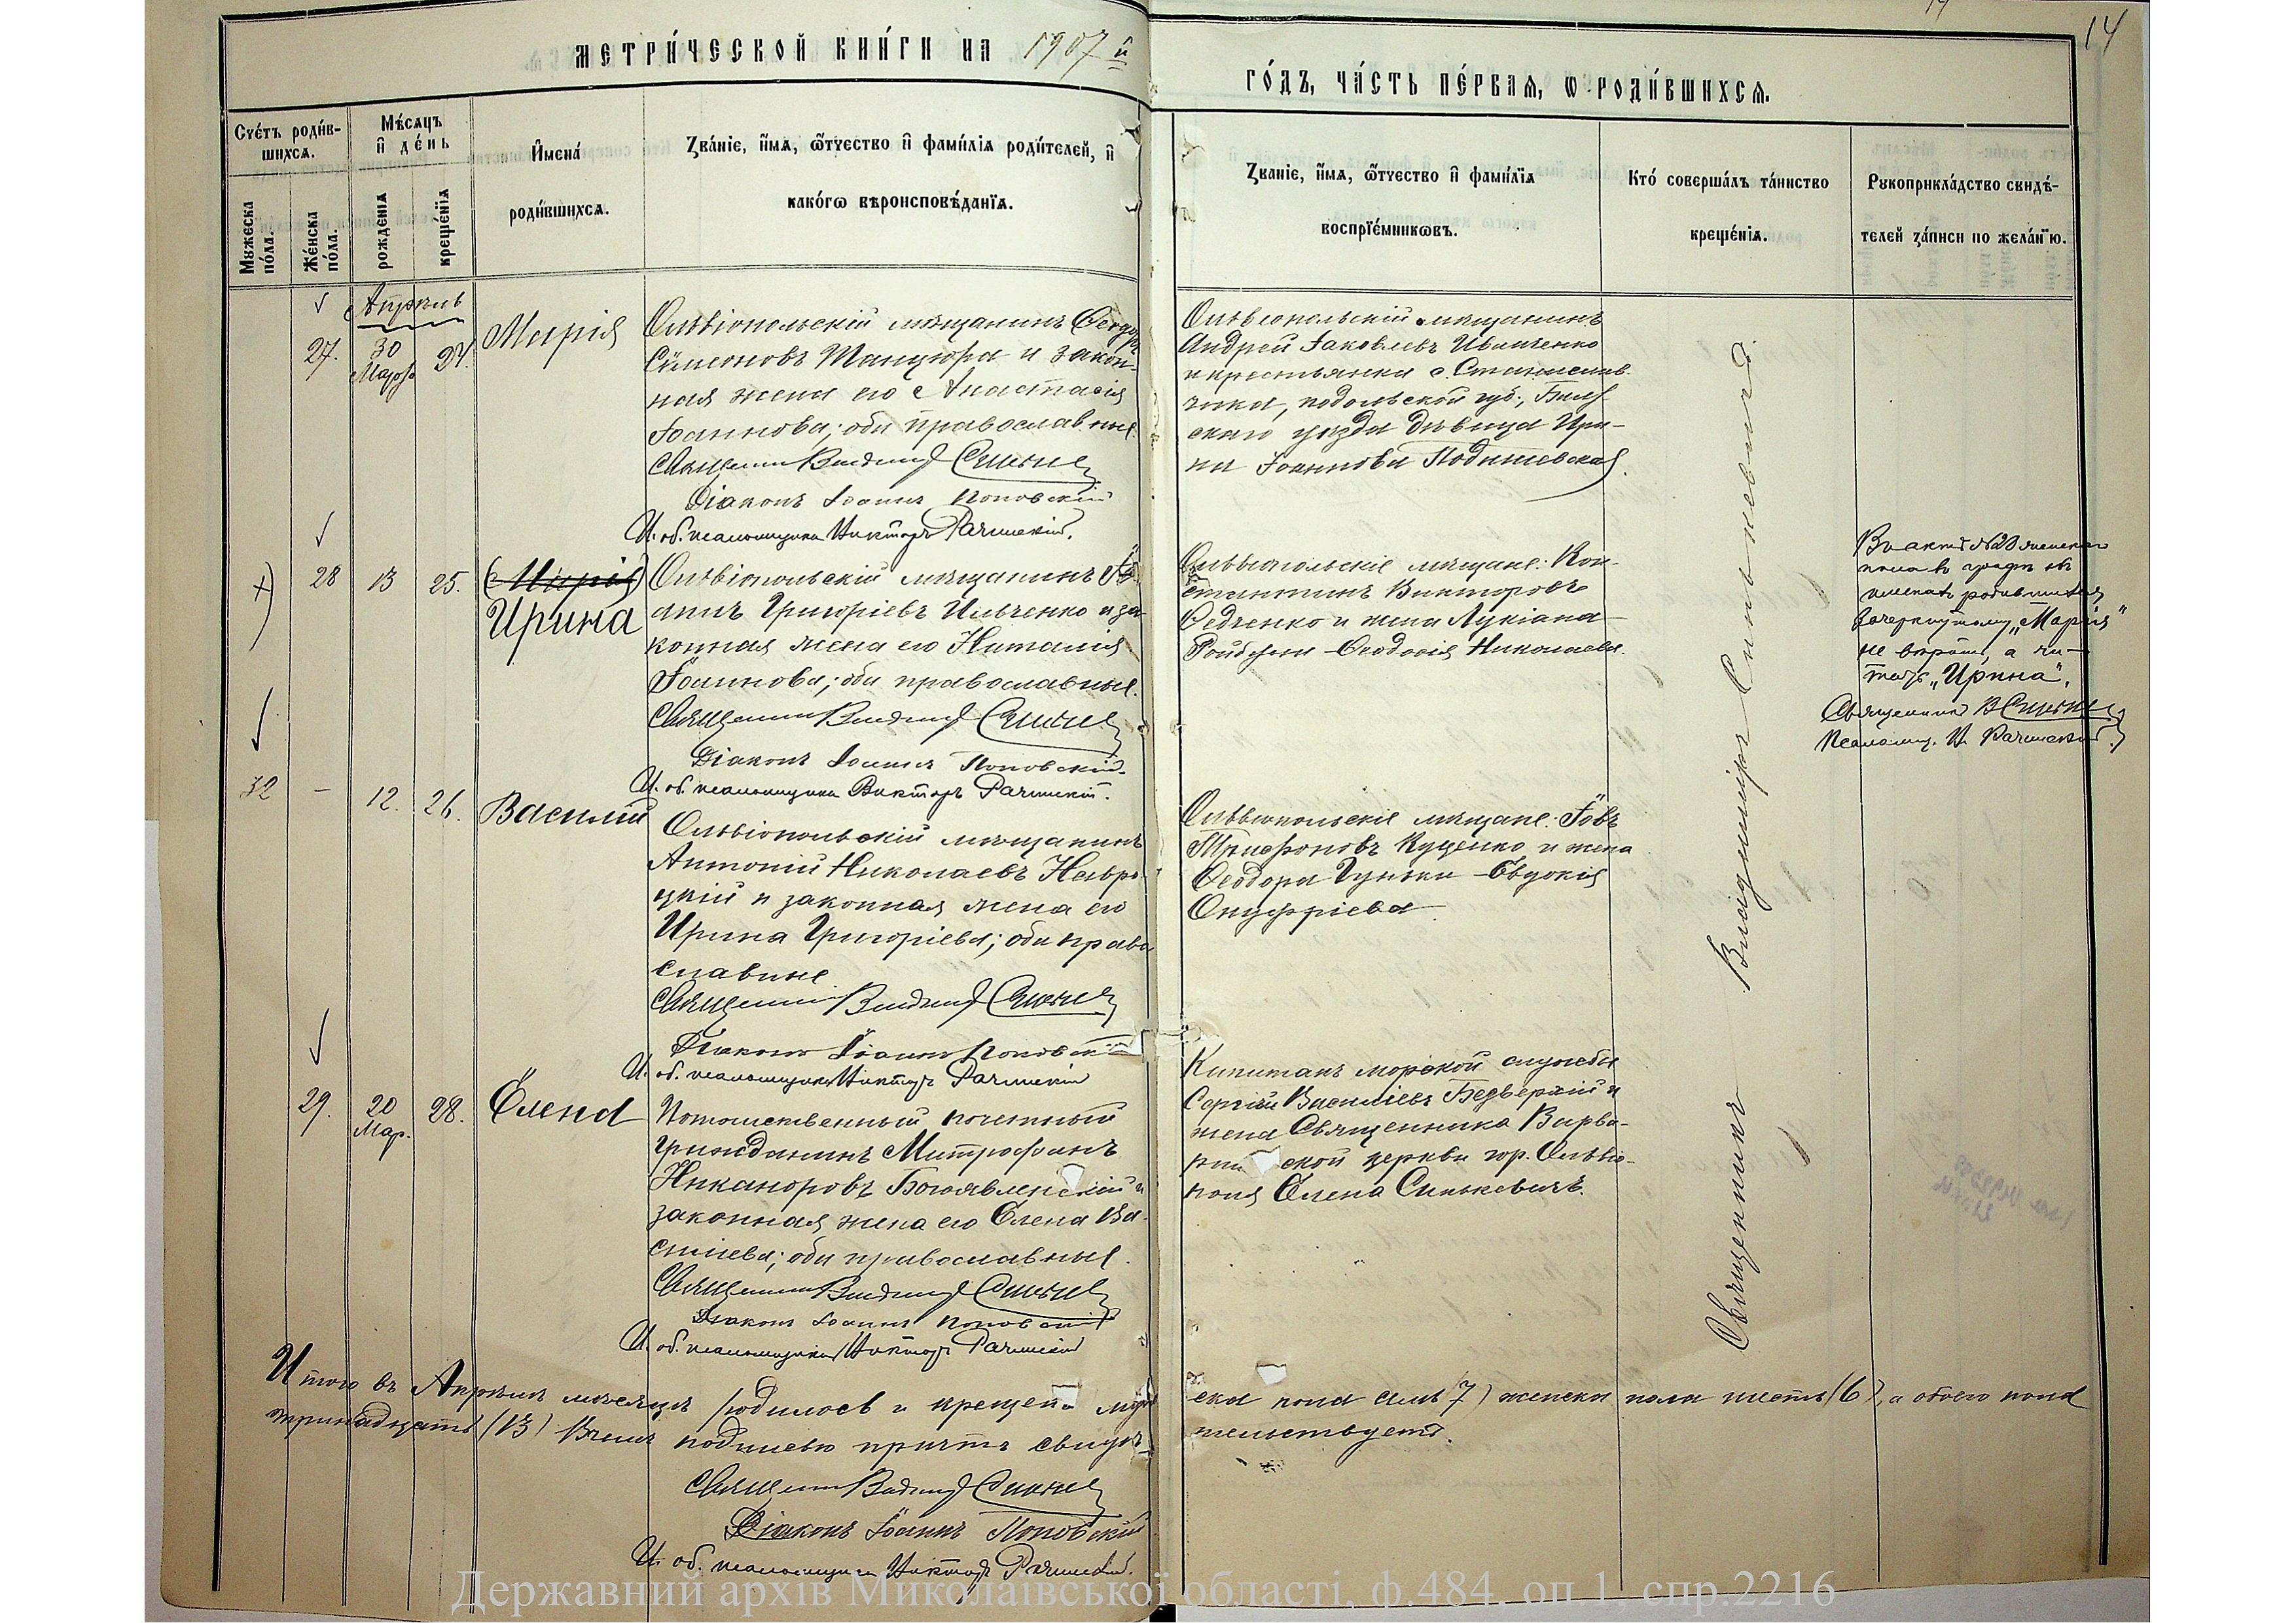 14
МЕТРИ́ЧЕСКОЙ КНИ́ГИ НА 1907 й
ГО́ДЪ, ЧА́СТЬ ПЕ́РВАѦ, Ѡ РОДИ́ВШИХСѦ.
Сче́тъ роди́в-
шихсѧ.
Мꙋжеска по́ла.
Же́нска по́ла.
Мѣ́сѧцъ
и҆ де́нь
рожде́нїѧ
креще́нїѧ
И҆мена́
роди́вшихсѧ.
Зва́нїе, и҆́мѧ, ѻ҆́тчество и҆ фами́лїѧ роди́телей, и҆
како́гѡ вѣроисповѣ́данїѧ.
Зва́нїе, и҆́мѧ, ѻ҆́тчество и҆ фами́лїѧ
воспрїе́мниковъ.
Кто́ соверша́лъ та́инство
креще́нїѧ.
Рꙋкоприкла́дство свидѣ́-
телей за́писи по жела́нїю.
Апрѣль
27.
30
Марта
27.
Марія
Ольвіопольскій мѣщанинъ Ѳеодоръ
Сѵмеоновъ Манцюра и закон-
ная жена его Анастасія
Іоаннова; оба православные.
Священникъ Владиміръ Синькев
Діаконъ Іоаннъ Поповскій
И. об. псаломщика Викторъ Рачинскій.
Ольвіопольскій мѣщанинъ
Андрей Іаковлевъ Ивинченко
и крестьянка с. Станислав
чика, подольской губ.,
скаго уѣзда дѣвица Ири-
на Іоаннова
28
13
25.
(Марія)
Ирина
Ольвіопольскій мѣщанинъ
Григоріевъ Ильченко и за-
конная жена его Наталія
Іоаннова; оба православные.
Священникъ Владиміръ Синькев
Діаконъ Іоаннъ Поповскій.
И. об. псаломщика Викторъ Рачинскій.
Ольвіопольскіе мѣщане: Кон-
стантинъ Викторовъ
Федченко и жена Лукіана
Ѳеодосія Николаева.
Въ актѣ №28 женскаго
пола въ графѣ объ
именахъ родившихся
Зачеркнутому „Марія"
не вѣрить, а чи-
тать „Ирина".
Священникъ В Синькев
Псаломщ. В. Рачинскій
32
–
12.
26.
Василій
Ольвіопольскій мѣщанинъ
Антоній Николаевъ Навро-
цкій и законная жена его
Ирина Григоріева; оба право
славные
Священникъ Владиміръ Синькев
Діаконъ Іоаннъ Поповскій
И. об. псаломщика Викторъ Рачинскій
Ольвіопольскіе мѣщане: Іовъ
Трифоновъ Куценко и жена
Ѳеодора Гуньки Евдокія
Онуфріева
29.
20
Мар.
28.
Елена
Потомственный почетный
гражданинъ Митрофанъ
Никаноровъ Богоявленскій и
законная жена его Елена Ва-
сильева; оба православные.
Священникъ Владиміръ Синькев
Діаконъ Іоаннъ Поповскій
И. об. псаломщика Викторъ Рачинскій
Капитанъ морской службы
Сергій Василіевъ Бедверхій и
жена Священника Варва-
ри ской церкви гор. Ольвіо-
поля Елена Синькевичъ.
Священникъ Владиміръ Синькевичъ
Итого въ Апрѣлѣ мѣсяцѣ родилось и крещено муж ска пола семь 7) женска пола шесть (6), а обоего пола
тринадцать (13) Въ чемъ подписью причтъ свидѣ- тельствуетъ.
Священникъ Владиміръ Синькев
Діаконъ Іоаннъ Поповскій
И. об. псаломщика Викторъ Рачинскій.
Державний архів Миколаївської області, ф.484, оп 1, спр.2216